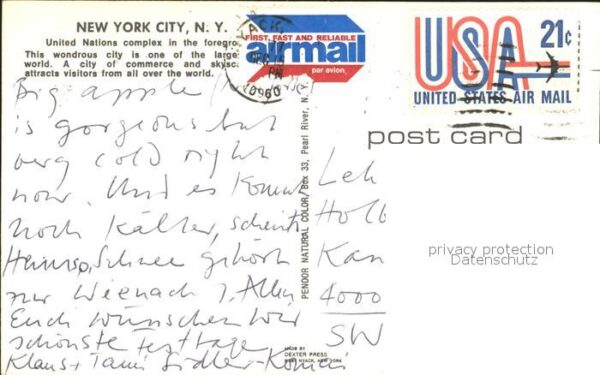 NEW YORK CITY, N. Y.
United Nations complex in the foregro
This wondrous city is one of the large
world. A city of commerce and skysc
attracts visitors from all over the world.
FIRST, FAST AND RELIABLE
airmail
par avion
NYACK
PM
10960
USA 21¢
UNITED STATES AIR MAIL
post card
Big apple
is gorgeous but
very cold right
now. Und es kommt
noch kälter, scheints
Schnee gehört
zur
Euch wünschen wir
schönste Festtage
Klaus + Tami Sidler-
PENDOR NATURAL COLOR, Box 33, Pearl River, N. Y.
MADE BY
DEXTER PRESS
WEST NYACK, NEW YORK
Leh
Holb
Kan
4000
SW
privacy protection
Datenschutz